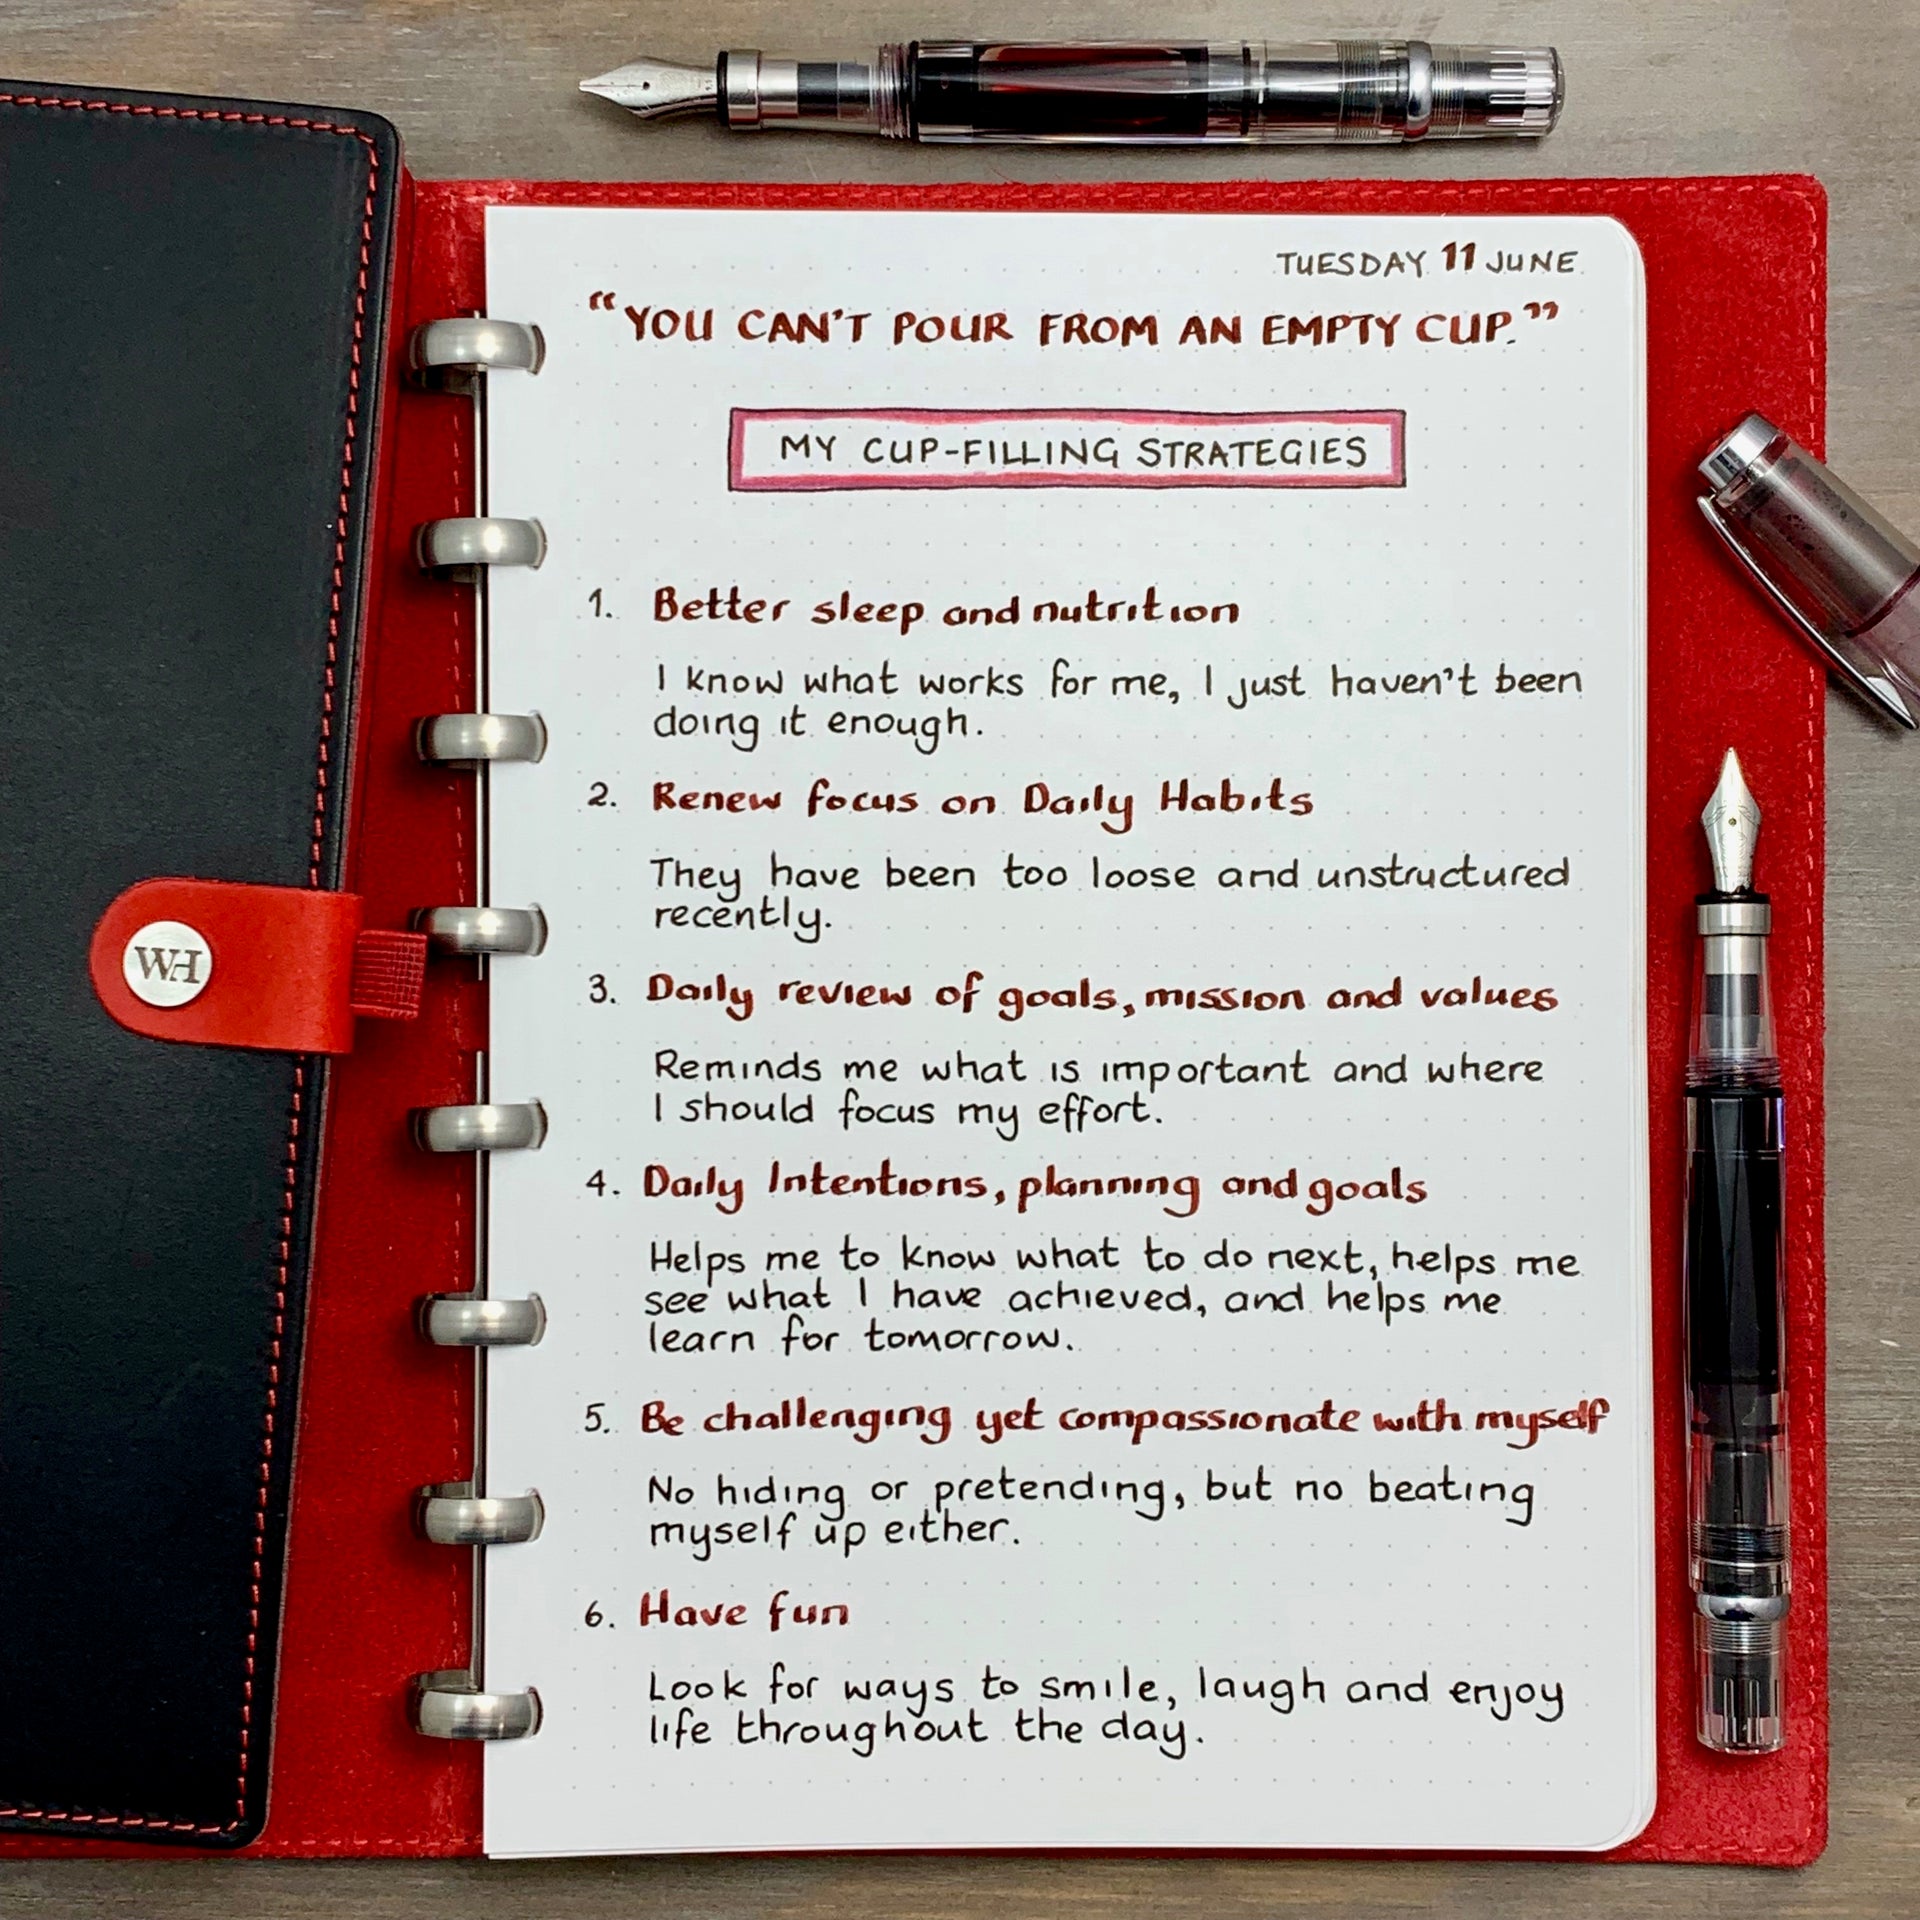 TUESDAY 11 JUNE
“YOU CAN'T POUR FROM AN EMPTY CUP.”
MY CUP-FILLING STRATEGIES
1. Better sleep and nutrition
I know what works for me, I just haven't been
doing it enough.
2. Renew focus on Daily Habits
They have been too loose and unstructured
recently.
3. Daily review of goals, mission and values
Reminds me what is important and where
I should focus my effort.
4. Daily Intentions, planning and goals
Helps me to know what to do next, helps me
see what I have achieved, and helps me
learn for tomorrow.
5. Be challenging yet compassionate with myself
No hiding or pretending, but no beating
myself up either.
6. Have fun
Look for ways to smile, laugh and enjoy
life throughout the day.
WH